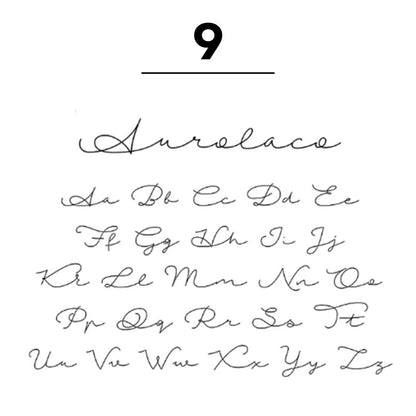 9
Aurolaco
Aa Bb Cc Dd Ee
Ff Gg Hh Ii Jj
Kk Ll Mm Nn Oo
Pp Qq Rr Ss Tt
Uu Vv Ww Xx Yy Zz